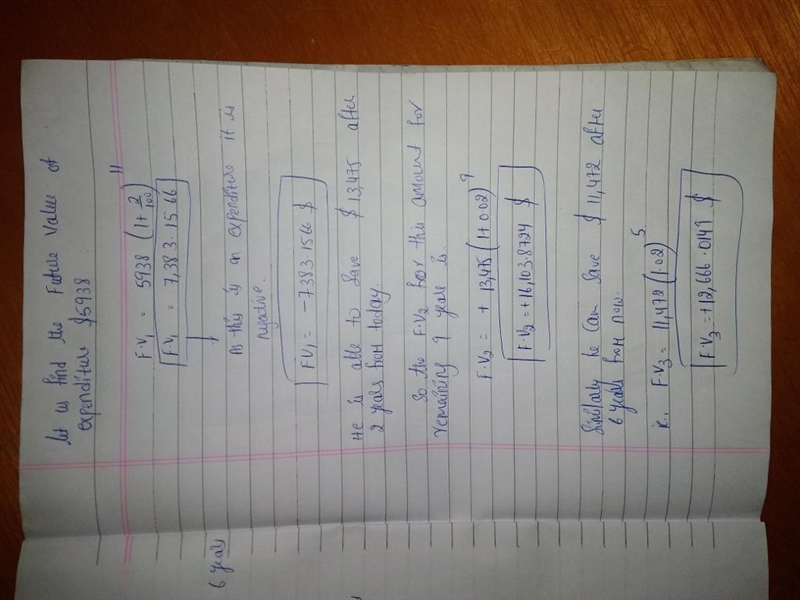 Let us find the Future Value of
expenditure $5938
F.V1 = 5938 (1+ 2/100)^11
F.V1 = 7,383.1566
As this is an expenditure it is
negative.
F.V1 = -7383.1566 $
He is able to save $ 13,475 after
2 years from today
So the F.V2 for this amount for
remaining 9 years is.
F.V2 = + 13,475 (1+0.02)^9
F.V2 = +16,103.8724 $
Similarly he can save $ 11,472 after
6 years from now.
ie., F.V3 = 11,472 (1.02)^5
F.V3 = +12,666.0149 $
6 years